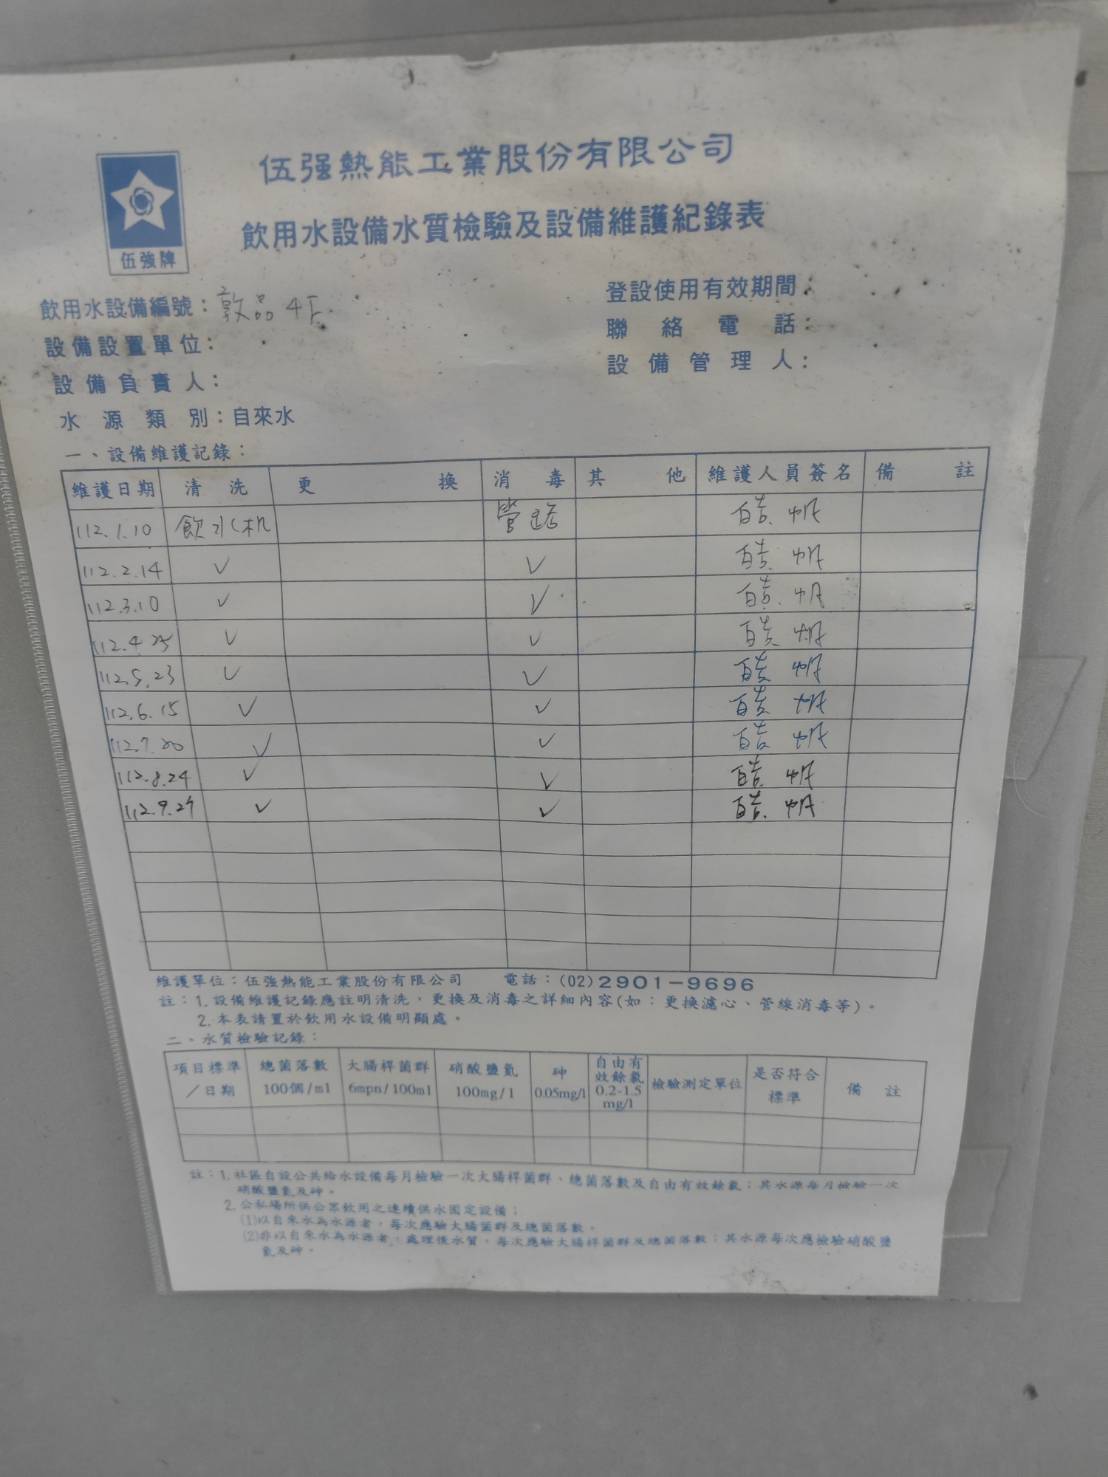 伍强熱能工業股份有限公司
飲用水設備水質檢驗及設備維護紀錄表
伍強牌
飲用水設備編號：敦品4F 登設使用有效期間：
設備設置單位： 聯絡電話：
設備負責人： 設備管理人：
水源類別：自來水
一、設備維護記錄：
維護日期 清洗 更換 消毒 其他 維護人員簽名 備註
112.1.10 飲水机 管路
112.2.14 ✓ ✓
112.3.10 ✓ ✓
112.4.25 ✓ ✓
112.5.23 ✓ ✓
112.6.15 ✓ ✓
112.7.20 ✓ ✓
112.8.24 ✓ ✓
112.9.27 ✓ ✓
維護單位：伍強熱能工業股份有限公司 電話：(02)2901-9696
註：1.設備維護記錄應註明清洗，更換及消毒之詳細內容(如：更換濾心、管線消毒等)。
2.本表請置於飲用水設備明顯處。
二、水質檢驗記錄：
項目標準／日期 總菌落數100個/ml 大腸桿菌群6mpn/100ml 硝酸鹽氮100mg/l 砷0.05mg/l 自由有效餘氯0.2-1.5mg/l 檢驗測定單位 是否符合標準 備註
註：1.社區自設公共給水設備每月檢驗一次大腸桿菌群、總菌落數及自由有效餘氯；其水源每月檢驗一次
硝酸鹽氮及砷。
2.公私場所供公眾飲用之連續供水固定設備；
(1)以自來水為水源者，每次應驗大腸菌群及總菌落數。
(2)非以自來水為水源者，處理後水質，每次應驗大腸桿菌群及總菌落數；其水源每次應檢驗硝酸鹽
氮及砷。